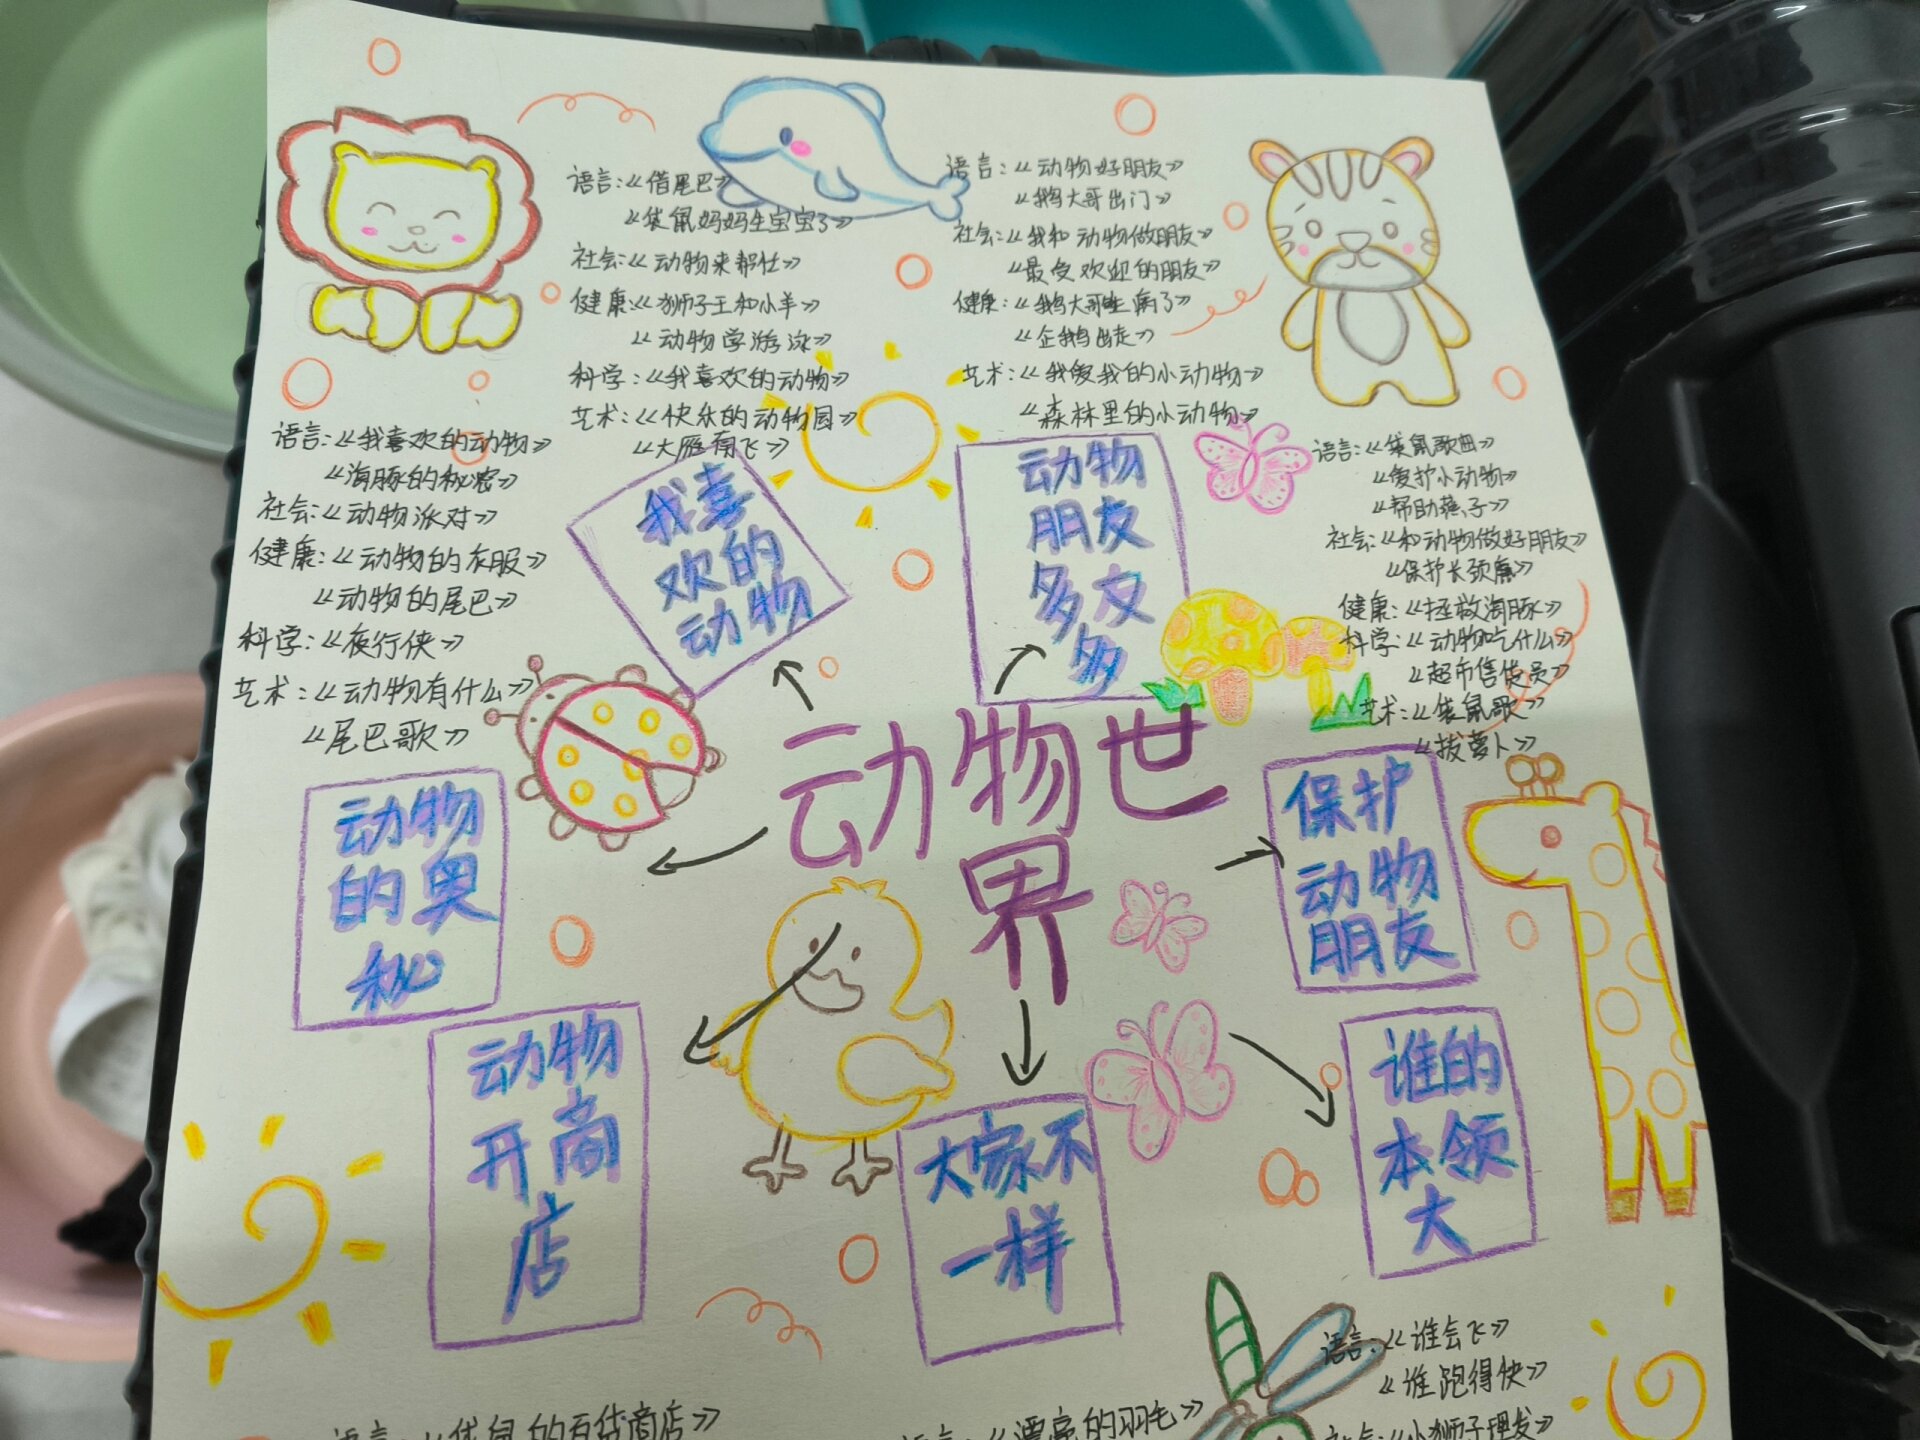 语言:《借尾巴》
《袋鼠妈妈生宝宝了》
社会:《动物来帮忙》
健康:《狮子王和小羊》
《动物学游泳》
科学:《我喜欢的动物》
艺术:《快乐的动物园》
《大雁南飞》
语言:《动物好朋友》
《鹅大哥出门》
社会:《我和动物做朋友》
《最受欢迎的朋友》
健康:《鹅大哥生病了》
《企鹅出走》
艺术:《我爱我的小动物》
《森林里的小动物》
语言:《我喜欢的动物》
《海豚的秘密》
社会:《动物派对》
健康:《动物的衣服》
《动物的尾巴》
科学:《夜行侠》
艺术:《动物有什么》
《尾巴歌》
语言:《袋鼠歌曲》
《爱护小动物》
《帮助燕子》
社会:《和动物做好朋友》
《保护长颈鹿》
健康:《拯救海豚》
科学:《动物吃什么》
《超市售货员》
艺术:《袋鼠歌》
《拔萝卜》
我喜
欢的
动物
动物
朋友
多又
多
动物世
界
动物
的奥
秘
保护
动物
朋友
动物
开商
店
大家不
一样
谁的
本领
大
语言:《谁会飞》
《谁跑得快》
语言:《袋鼠的百货商店》
语言:《漂亮的羽毛》
社会:《小狮子理发》